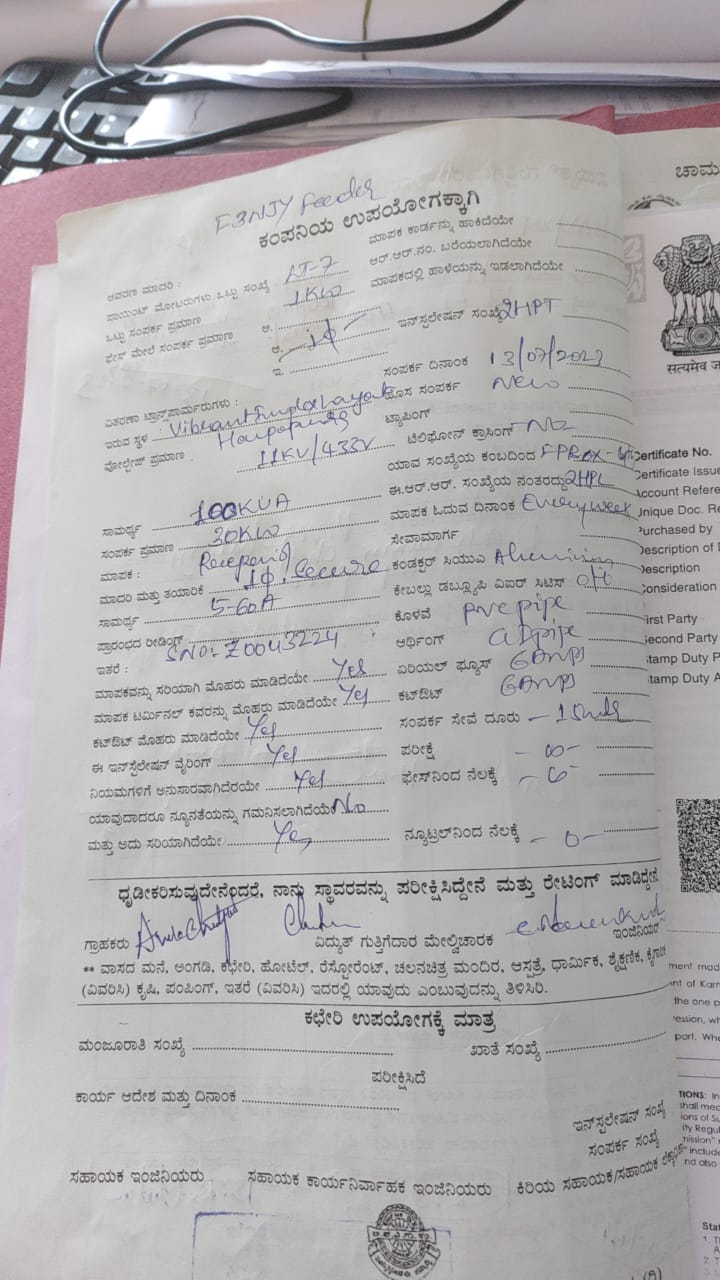 F3NJY Feeder
ಕಂಪನಿಯ ಉಪಯೋಗಕ್ಕಾಗಿ
ಮಾಪಕ ಕಾರ್ಡನ್ನು ಹಾಕಿದೆಯೇ
ಆವರಣ ಮಾದರಿ :
ಆರ್.ಆರ್.ನಂ. ಬರೆಯಲಾಗಿದೆಯೇ
ಪಾಯಿಂಟ್ ಮೋಟರುಗಳು ಒಟ್ಟು ಸಂಖ್ಯೆ LT-7
ಮಾಪಕದಲ್ಲಿ ಹಾಳೆಯನ್ನು ಇಡಲಾಗಿದೆಯೇ
ಒಟ್ಟು ಸಂಪರ್ಕ ಪ್ರಮಾಣ 1KW
ಫೇಸ್ ಮೇಲೆ ಸಂಪರ್ಕ ಪ್ರಮಾಣ ಅ.
ಆ. 1φ
ಇ.
ಇನ್‌ಸ್ಟಲೇಷನ್ ಸಂಖ್ಯೆ 2HPT
ಸಂಪರ್ಕ ದಿನಾಂಕ 13/07/2023
ವಿತರಣಾ ಟ್ರಾನ್ಸ್‌ಫಾರ್ಮರುಗಳು :
ಹೊಸ ಸಂಪರ್ಕ New
ಇರುವ ಸ್ಥಳ
ಟ್ಯಾಪಿಂಗ್
ವೋಲ್ಟೇಜ್ ಪ್ರಮಾಣ : 11KV/433V
ಟೆಲಿಫೋನ್ ಕ್ರಾಸಿಂಗ್ No
ಯಾವ ಸಂಖ್ಯೆಯ ಕಂಬದಿಂದ
ಸಾಮರ್ಥ್ಯ 100KVA
ಈ.ಆರ್.ಆರ್. ಸಂಖ್ಯೆಯ ನಂತರದ್ದು 2HPL
ಸಂಪರ್ಕ ಪ್ರಮಾಣ 30KW
ಮಾಪಕ ಓದುವ ದಿನಾಂಕ Every week
ಮಾಪಕ :
ಸೇವಾಮಾರ್ಗ
ಮಾದರಿ ಮತ್ತು ತಯಾರಿಕೆ 1φ, Secure
ಕಂಡಕ್ಟರ್ ಸಿಯುವಿ
ಸಾಮರ್ಥ್ಯ 5-60A
ಕೇಬಲ್ಲು ಡಬ್ಲ್ಯೂಪಿ ವಿಐರ್ ಸಿಟಿಸ್ OH
ಪ್ರಾರಂಭದ ರೀಡಿಂಗ್
ಕೊಳವೆ pvc pipe
ಇತರೆ : SNO:- Z0043224
ಆರ್ಥಿಂಗ್ GI pipe
ಮಾಪಕವನ್ನು ಸರಿಯಾಗಿ ಮೊಹರು ಮಾಡಿದೆಯೇ Yes
ಏರಿಯಲ್ ಫ್ಯೂಸ್ 60Amps
ಮಾಪಕ ಟರ್ಮಿನಲ್ ಕವರನ್ನು ಮೊಹರು ಮಾಡಿದೆಯೇ Yes
ಕಟ್‌ಔಟ್ 60Amps
ಕಟ್‌ಔಟ್ ಮೊಹರು ಮಾಡಿದೆಯೇ Yes
ಸಂಪರ್ಕ ಸೇವೆ ದೂರು
ಈ ಇನ್‌ಸ್ಟಲೇಷನ್ ವೈರಿಂಗ್ Yes
ಪರೀಕ್ಷೆ - ∞ -
ನಿಯಮಗಳಿಗೆ ಅನುಸಾರವಾಗಿದೆರಯೇ Yes
ಫೇಸ್‌ನಿಂದ ನೆಲಕ್ಕೆ
ಯಾವುದಾದರೂ ನ್ಯೂನತೆಯನ್ನು ಗಮನಿಸಲಾಗಿದೆಯೆ No
ಮತ್ತು ಅದು ಸರಿಯಾಗಿದೆಯೇ Yes
ನ್ಯೂಟ್ರಲ್‌ನಿಂದ ನೆಲಕ್ಕೆ - 0 -
ಧೃಡೀಕರಿಸುವುದೇನೆಂದರೆ, ನಾನು ಸ್ಥಾವರವನ್ನು ಪರೀಕ್ಷಿಸಿದ್ದೇನೆ ಮತ್ತು ರೇಟಿಂಗ್ ಮಾಡಿದ್ದೇನೆ.
ಗ್ರಾಹಕರು ವಿದ್ಯುತ್ ಗುತ್ತಿಗೆದಾರ ಮೇಲ್ವಿಚಾರಕ ಇಂಜಿನಿಯರ್
** ವಾಸದ ಮನೆ, ಅಂಗಡಿ, ಕಛೇರಿ, ಹೋಟೆಲ್, ರೆಸ್ಟೋರೆಂಟ್, ಚಲನಚಿತ್ರ ಮಂದಿರ, ಆಸ್ಪತ್ರೆ, ಧಾರ್ಮಿಕ, ಶೈಕ್ಷಣಿಕ,
(ವಿವರಿಸಿ) ಕೃಷಿ, ಪಂಪಿಂಗ್, ಇತರೆ (ವಿವರಿಸಿ) ಇದರಲ್ಲಿ ಯಾವುದು ಎಂಬುವುದನ್ನು ತಿಳಿಸಿರಿ.
ಕಛೇರಿ ಉಪಯೋಗಕ್ಕೆ ಮಾತ್ರ
ಮಂಜೂರಾತಿ ಸಂಖ್ಯೆ
ಖಾತೆ ಸಂಖ್ಯೆ
ಪರೀಕ್ಷಿಸಿದೆ
ಕಾರ್ಯ ಆದೇಶ ಮತ್ತು ದಿನಾಂಕ
ಇನ್‌ಸ್ಟಲೇಷನ್ ಸಂಖ್ಯೆ
ಸಂಪರ್ಕ ಸಂಖ್ಯೆ
ಸಹಾಯಕ ಇಂಜಿನಿಯರು ಸಹಾಯಕ ಕಾರ್ಯನಿರ್ವಾಹಕ ಇಂಜಿನಿಯರು ಕಿರಿಯ ಸಹಾಯಕ/ಸಹಾಯಕ
ಚಾಮ
Certificate No.
Certificate Issue
Account Refere
Unique Doc. Re
Purchased by
Description of D
Description
Consideration
First Party
Second Party
Stamp Duty P
Stamp Duty A